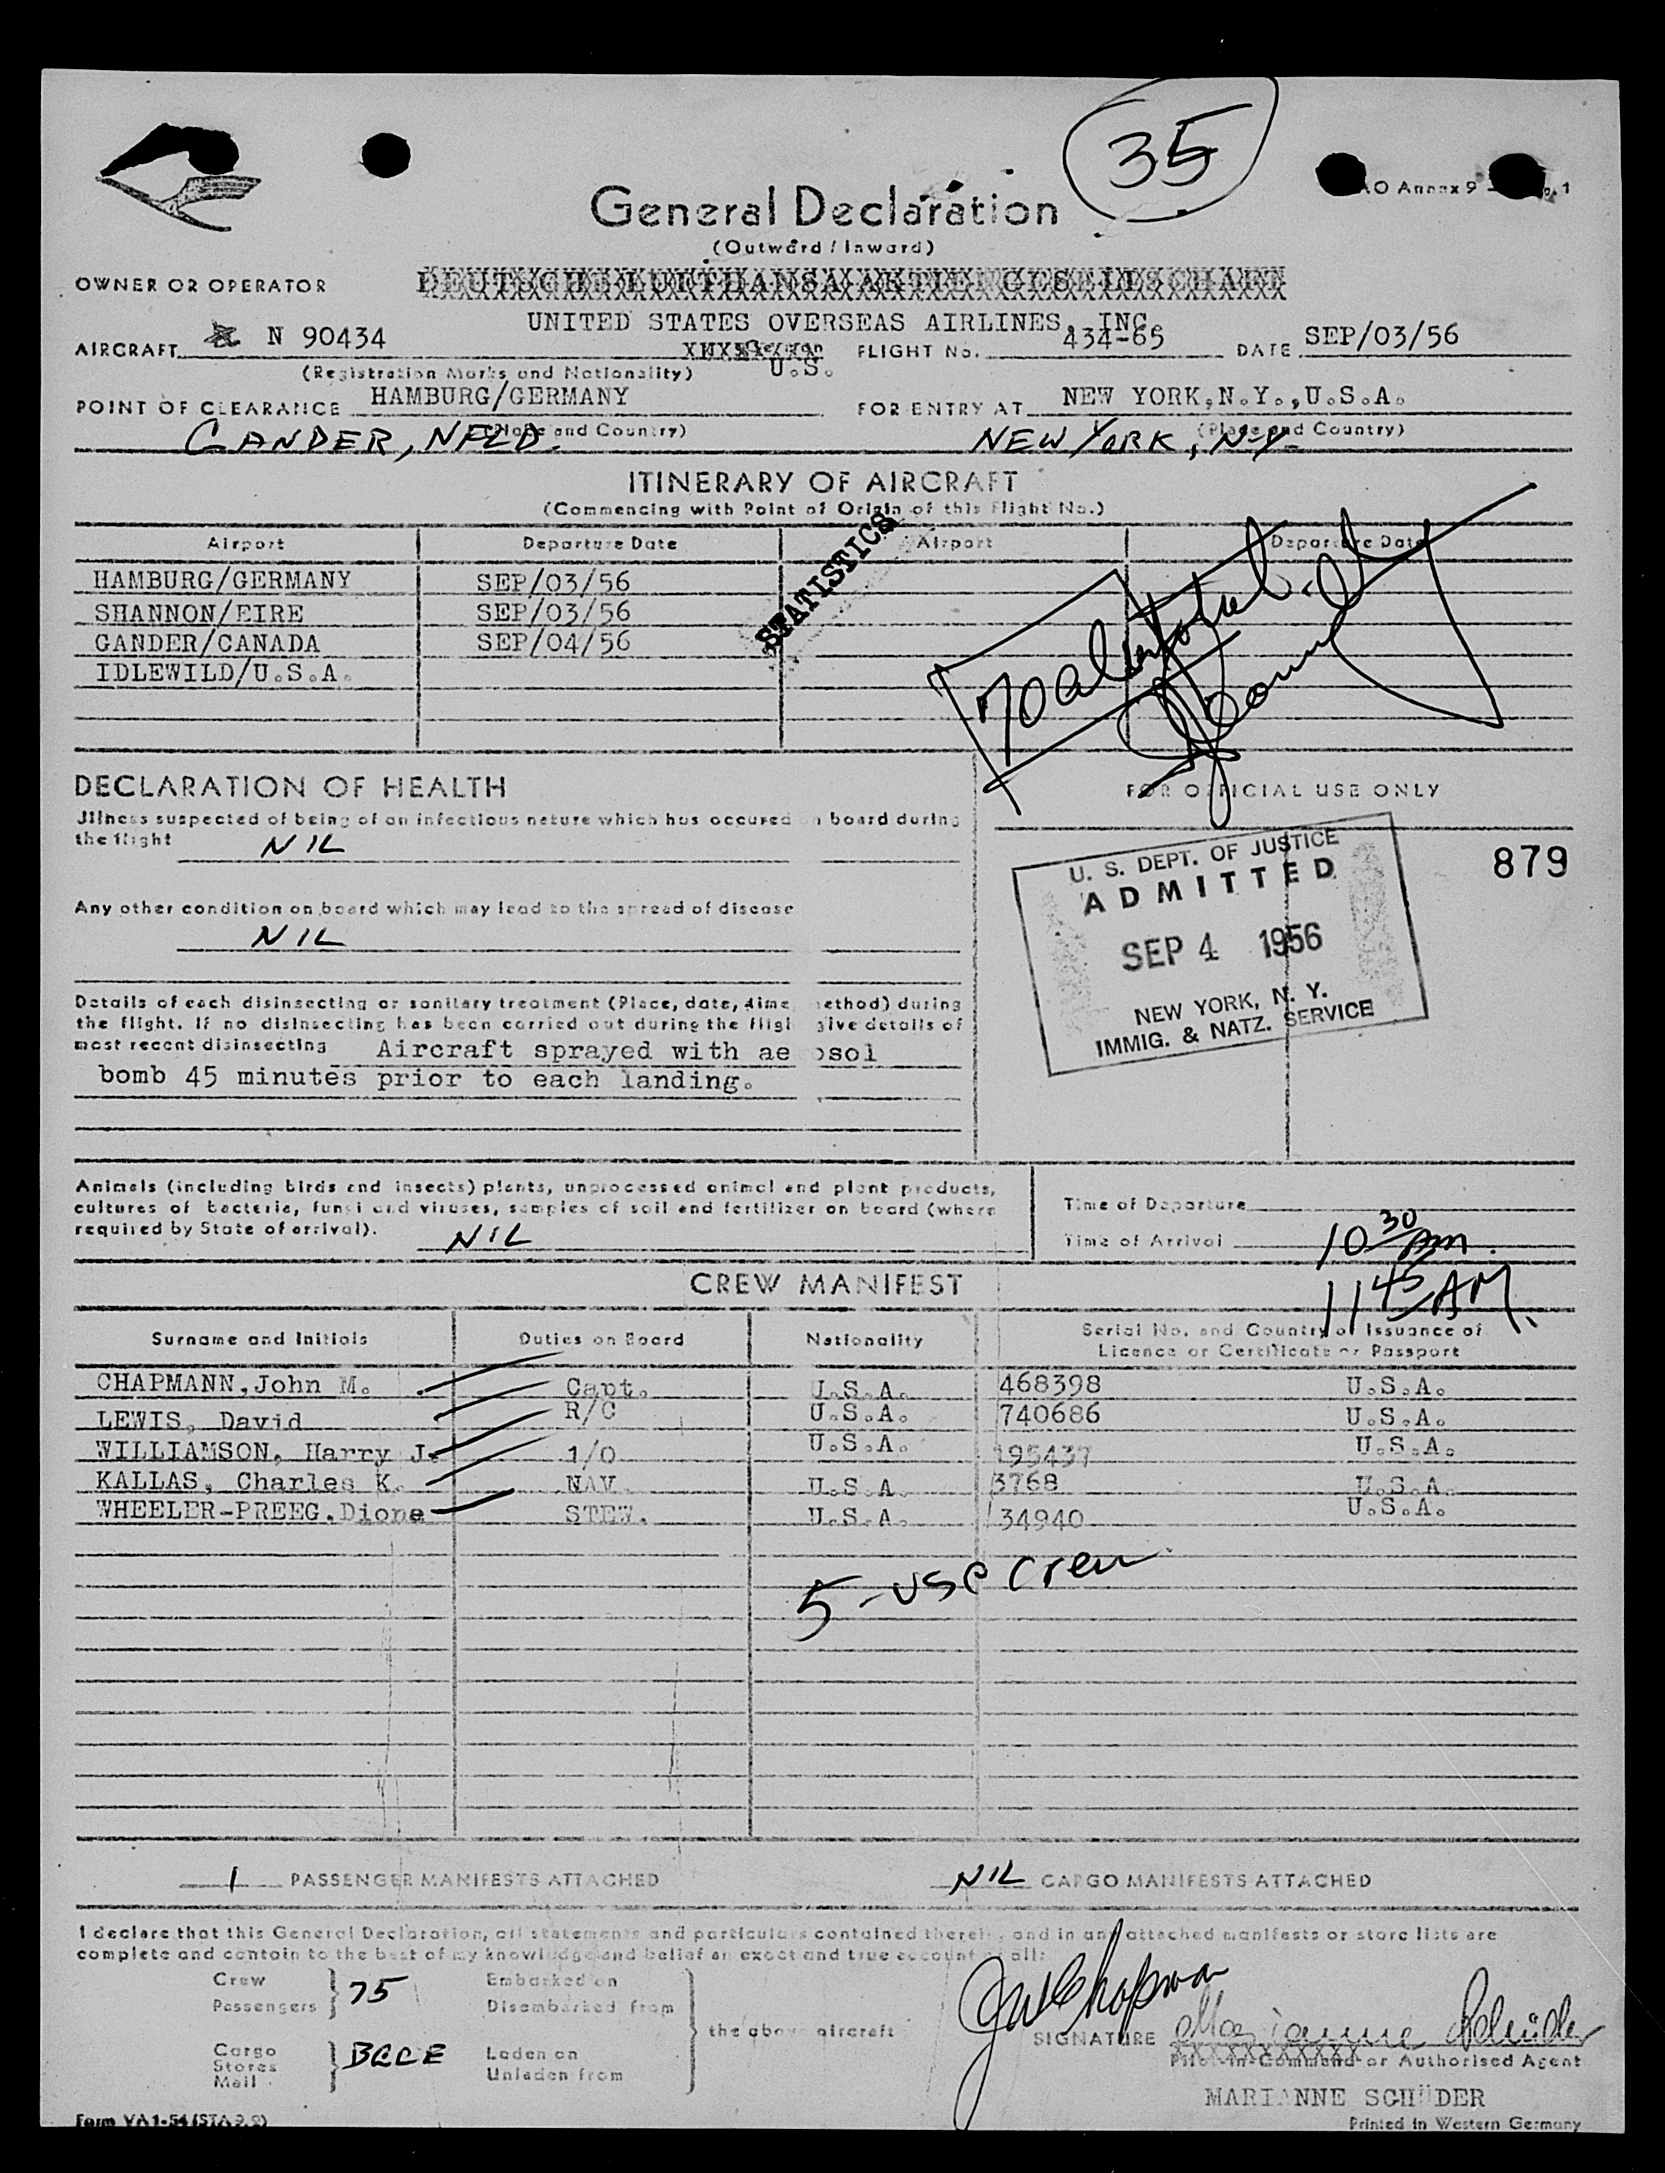 35
ICAO Annex 9
General Declaration
(Outward / Inward)
OWNER OR OPERATOR DEUTSCHE LUFTHANSA AKTIENGESELLSCHAFT
UNITED STATES OVERSEAS AIRLINES, INC.
AIRCRAFT N 90434 German FLIGHT No. 434-65 DATE SEP/03/56
(Registration Marks and Nationality) U.S.
POINT OF CLEARANCE HAMBURG/GERMANY FOR ENTRY AT NEW YORK,N.Y.,U.S.A.
(Place and Country) (Place and Country)
GANDER, NFLD. NEW YORK, N.Y.
ITINERARY OF AIRCRAFT
(Commencing with Point of Origin of this Flight No.)
Airport Departure Date Airport Departure Date
HAMBURG/GERMANY SEP/03/56
SHANNON/EIRE SEP/03/56
GANDER/CANADA SEP/04/56
IDLEWILD/U.S.A.
STATISTICS
70
DECLARATION OF HEALTH
Illness suspected of being of an infectious nature which has occured on board during
the flight NIL
Any other condition on board which may lead to the spread of disease
NIL
Details of each disinsecting or sanitary treatment (Place, date, time, method) during
the flight. If no disinsecting has been carried out during the flight give details of
most recent disinsecting Aircraft sprayed with aerosol
bomb 45 minutes prior to each landing.
FOR OFFICIAL USE ONLY
879
U. S. DEPT. OF JUSTICE
ADMITTED
SEP 4 1956
NEW YORK, N. Y.
IMMIG. & NATZ. SERVICE
Animals (including birds and insects) plants, unprocessed animal and plant products,
cultures of bacteria, fungi and viruses, samples of soil and fertilizer on board (where
required by State of arrival). NIL
Time of Departure
Time of Arrival 10 30 AM.
11 45 AM
CREW MANIFEST
Surname and Initials Duties on Board Nationality Serial No. and Country of Issuance of
Licence or Certificate or Passport
CHAPMANN,John M. Capt. U.S.A. 468398 U.S.A.
LEWIS, David R/C U.S.A. 740686 U.S.A.
WILLIAMSON, Harry J. 1/O U.S.A. 195437 U.S.A.
KALLAS, Charles K. NAV. U.S.A. 3768 U.S.A.
WHEELER-PREEG,Dione STEW. U.S.A. 34940 U.S.A.
5-USC crew
1 PASSENGER MANIFESTS ATTACHED NIL CARGO MANIFESTS ATTACHED
I declare that this General Declaration, all statements and particulars contained therein, and in any attached manifests or store lists are
complete and contain to the best of my knowledge and belief an exact and true account of all:
Crew
Passengers 75
Embarked on
Disembarked from
the above aircraft
Cargo
Stores
Mail
Laden on
Unladen from
SIGNATURE
Pilot-in-Command or Authorised Agent
MARIANNE SCHÜDER
Form VA 1-54 (STA 9.2)
Printed in Western Germany